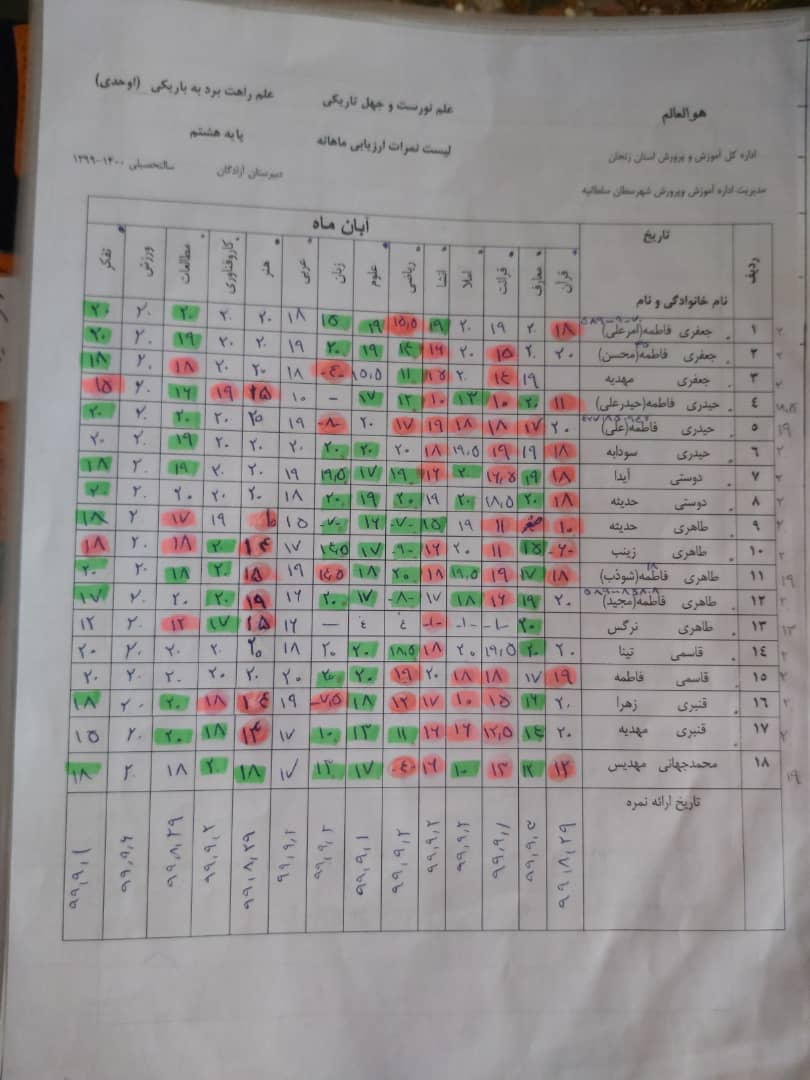 هوالعالم
علم نورست و جهل تاریکی
علم راهت برد به باریکی _ (اوحدی)
اداره کل آموزش و پرورش استان زنجان
لیست نمرات ارزیابی ماهانه
پایه هشتم
مدیریت اداره آموزش وپرورش شهرسطان سلطانیه
دبیرستان آزادگان
سالتحصیلی ۱۴۰۰-۱۳۹۹
ردیف تاریخ آبان ماه
نام خانوادگی و نام قرآن معارف قرائت املا انشا ریاضی علوم زبان عربی هنر کاروفناوری مطالعات ورزش تفکر
۱ جعفری فاطمه(امرعلی) ۱۸ ۲۰ ۱۹ ۲۰ ۱۹ ۱۵,۵ ۱۹ ۱۵ ۱۸ ۲۰ ۲۰ ۲۰ ۲۰ ۲۰
۲ جعفری فاطمه(محسن) ۲۰ ۲۰ ۱۵ ۲۰ ۱۶ ۱۴ ۱۹ ۲۰ ۱۹ ۲۰ ۲۰ ۱۹ ۲۰ ۲۰
۳ جعفری مهدیه ۱۹ ۱۴ ۲۰ ۱۱ ۱۵,۵ -۴- ۱۸ ۲۰ ۲۰ ۱۸ ۲۰ ۱۸
۴ حیدری فاطمه(حیدرعلی) ۱۱ ۲۰ ۱۰ ۱۳ ۱۰ ۱۲ ۱۷ - ۱۰ ۱۵ ۱۹ ۱۶ ۲۰ ۱۵
۵ حیدری فاطمه(علی) ۲۰ ۱۷ ۱۸ ۱۸ ۱۹ ۱۷ ۲۰ -۸- ۱۹ ۲۰ ۲۰ ۲۰ ۲۰ ۲۰
۶ حیدری سودابه ۱۸ ۱۹ ۱۹ ۱۹,۵ ۱۸ ۲۰ ۲۰ ۲۰ ۲۰ ۲۰ ۲۰ ۱۹ ۲۰ ۲۰
۷ دوستی آیدا ۱۸ ۱۹ ۱۶,۵ ۲۰ ۱۶ ۱۹ ۱۷ ۱۹,۵ ۱۹ ۲۰ ۲۰ ۱۹ ۲۰ ۱۸
۸ دوستی حدیثه ۱۸ ۲۰ ۱۸,۵ ۲۰ ۱۹ ۲۰ ۱۹ ۲۰ ۱۸ ۲۰ ۲۰ ۲۰ ۲۰ ۲۰
۹ طاهری حدیثه ۱۰ صفر ۱۱ ۱۹ ۱۵ -۷- ۱۶ -۷- ۱۵ ۱۹ ۱۷ ۲۰ ۱۸
۱۰ طاهری زینب -۶- ۱۵ ۱۱ ۲۰ ۱۶ -۹- ۱۷ ۱۴,۵ ۱۷ ۱۴ ۲۰ ۱۸ ۲۰ ۱۸
۱۱ طاهری فاطمه(شوذب) ۱۸ ۱۷ ۱۹ ۱۹,۵ ۱۸ ۲۰ ۱۸ ۱۴,۵ ۱۹ ۱۵ ۲۰ ۱۸ ۲۰ ۲۰
۱۲ طاهری فاطمه(مجید) ۲۰ ۱۹ ۱۶ ۱۸ ۱۷ -۸- ۱۷ ۲۰ ۱۶ ۱۹ ۲۰ ۲۰ ۲۰ ۱۷
۱۳ طاهری نرگس ۲۰ -۱- -۱- -۱- ۴ ۴ - ۱۲ ۱۵ ۱۷ ۱۲ ۲۰ ۱۲
۱۴ قاسمی تینا ۲۰ ۲۰ ۱۹,۵ ۲۰ ۱۸ ۱۸,۵ ۲۰ ۲۰ ۱۸ ۲۰ ۲۰ ۲۰ ۲۰ ۲۰
۱۵ قاسمی فاطمه ۱۹ ۱۷ ۱۸ ۱۸ ۲۰ ۱۹ ۲۰ ۲۰ ۲۰ ۲۰ ۲۰ ۲۰ ۲۰ ۲۰
۱۶ قنبری زهرا ۲۰ ۱۶ ۱۵ ۱۰ ۱۷ ۱۲ ۱۸ -۷,۵ ۱۹ ۱۴ ۱۸ ۲۰ ۲۰ ۱۸
۱۷ قنبری مهدیه ۲۰ ۱۴ ۱۲,۵ ۱۶ ۱۶ ۱۱ ۱۳ ۱۰ ۱۷ ۱۴ ۱۸ ۲۰ ۲۰ ۱۵
۱۸ محمدجهانی مهدیس ۱۲ ۱۲ ۱۳ ۱۰ ۱۶ -۴- ۱۷ ۱۳ ۱۷ ۱۸ ۲۰ ۱۸ ۲۰ ۱۸
تاریخ ارائه نمره ۹۹,۸,۲۹ ۹۹,۹,۴ ۹۹,۹,۱ ۹۹,۹,۲ ۹۹,۹,۲ ۹۹,۹,۲ ۹۹,۹,۱ ۹۹,۹,۲ ۹۹,۹,۲ ۹۹,۸,۲۹ ۹۹,۹,۲ ۹۹,۸,۲۹ ۹۹,۹,۶ ۹۹,۹,۱